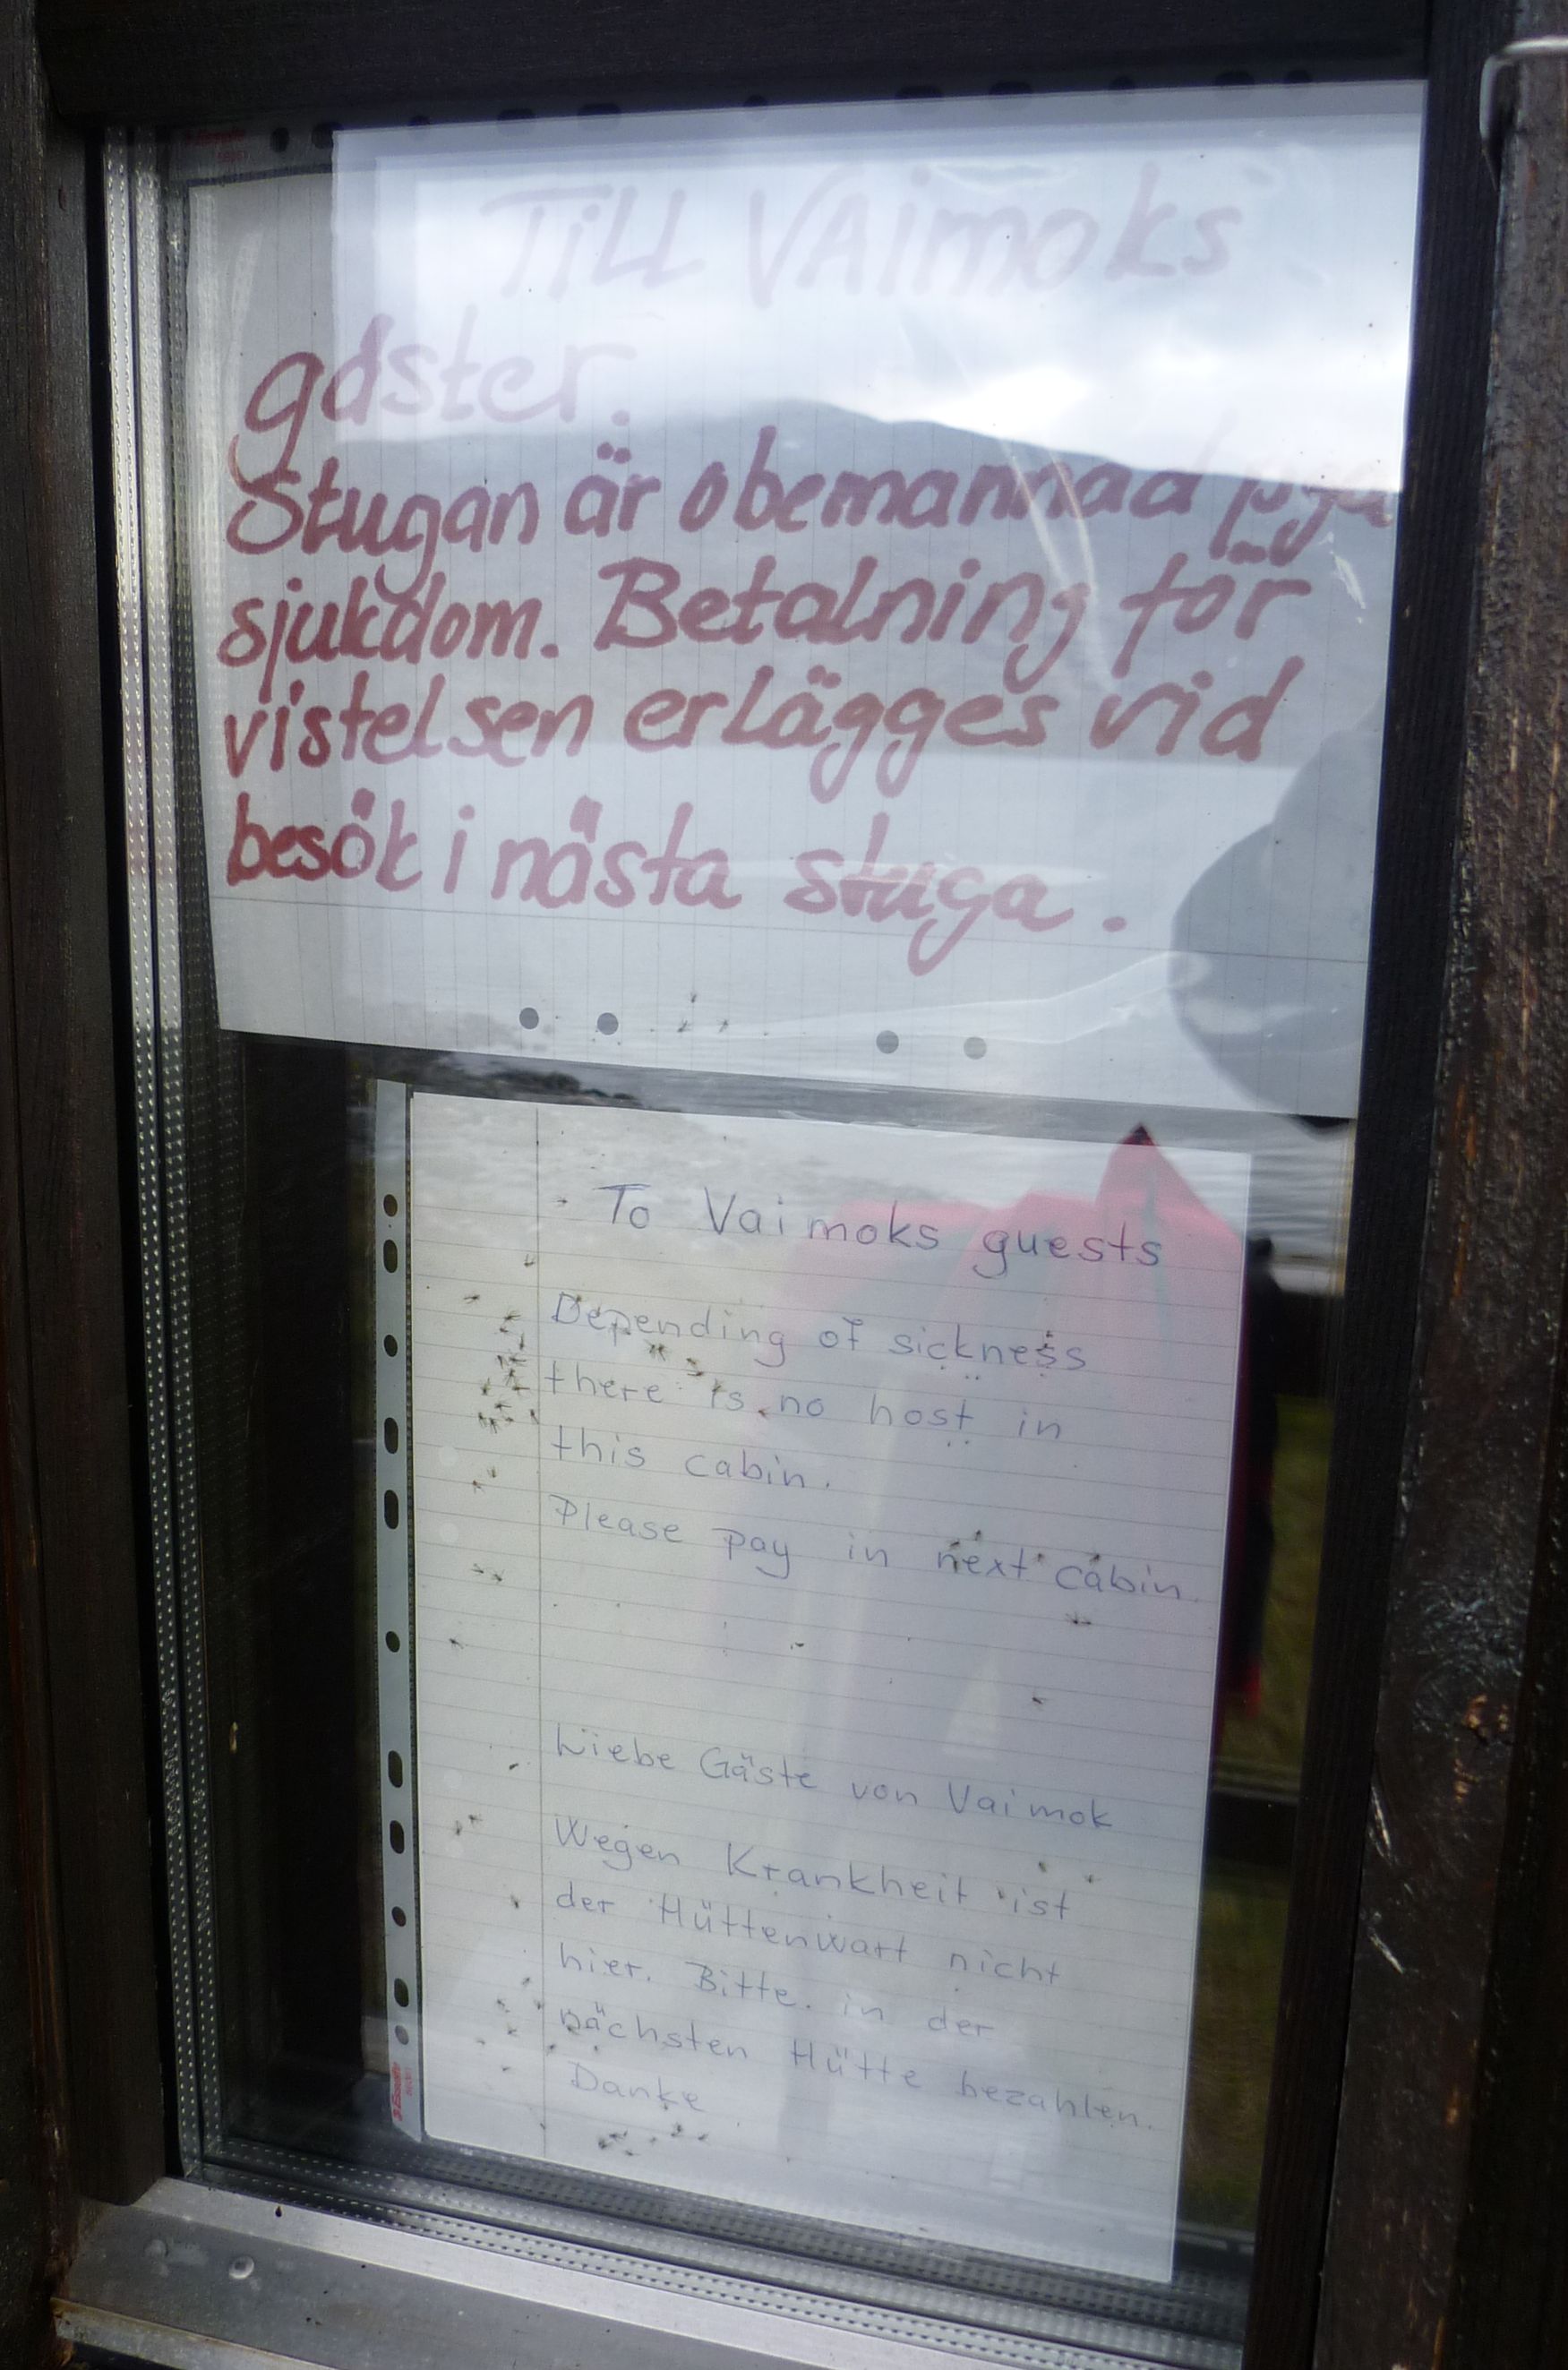 TiLL VAimoks
gäster.
Stugan är obemannad pga
sjukdom. Betalning för
vistelsen erlägges vid
besök i nästa stuga.
To Vaimoks guests
Depending of sickness
there is no host in
this cabin.
Please pay in next cabin.
Liebe Gäste von Vaimok
Wegen Krankheit ist
der Hüttenwart nicht
hier. Bitte in der
nächsten Hütte bezahlen.
Danke